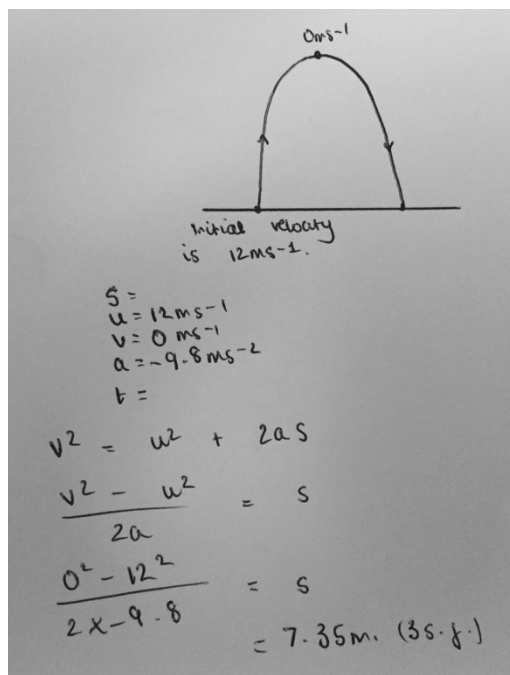 0ms-1
Initial velocity
is 12ms-1.
S =
u = 12ms-1
v = 0 ms-1
a = -9.8 ms-2
t =
v² = u² + 2as
v² - u² / 2a = s
0² - 12² / 2x-9.8 = s
= 7.35m. (3s.f.)